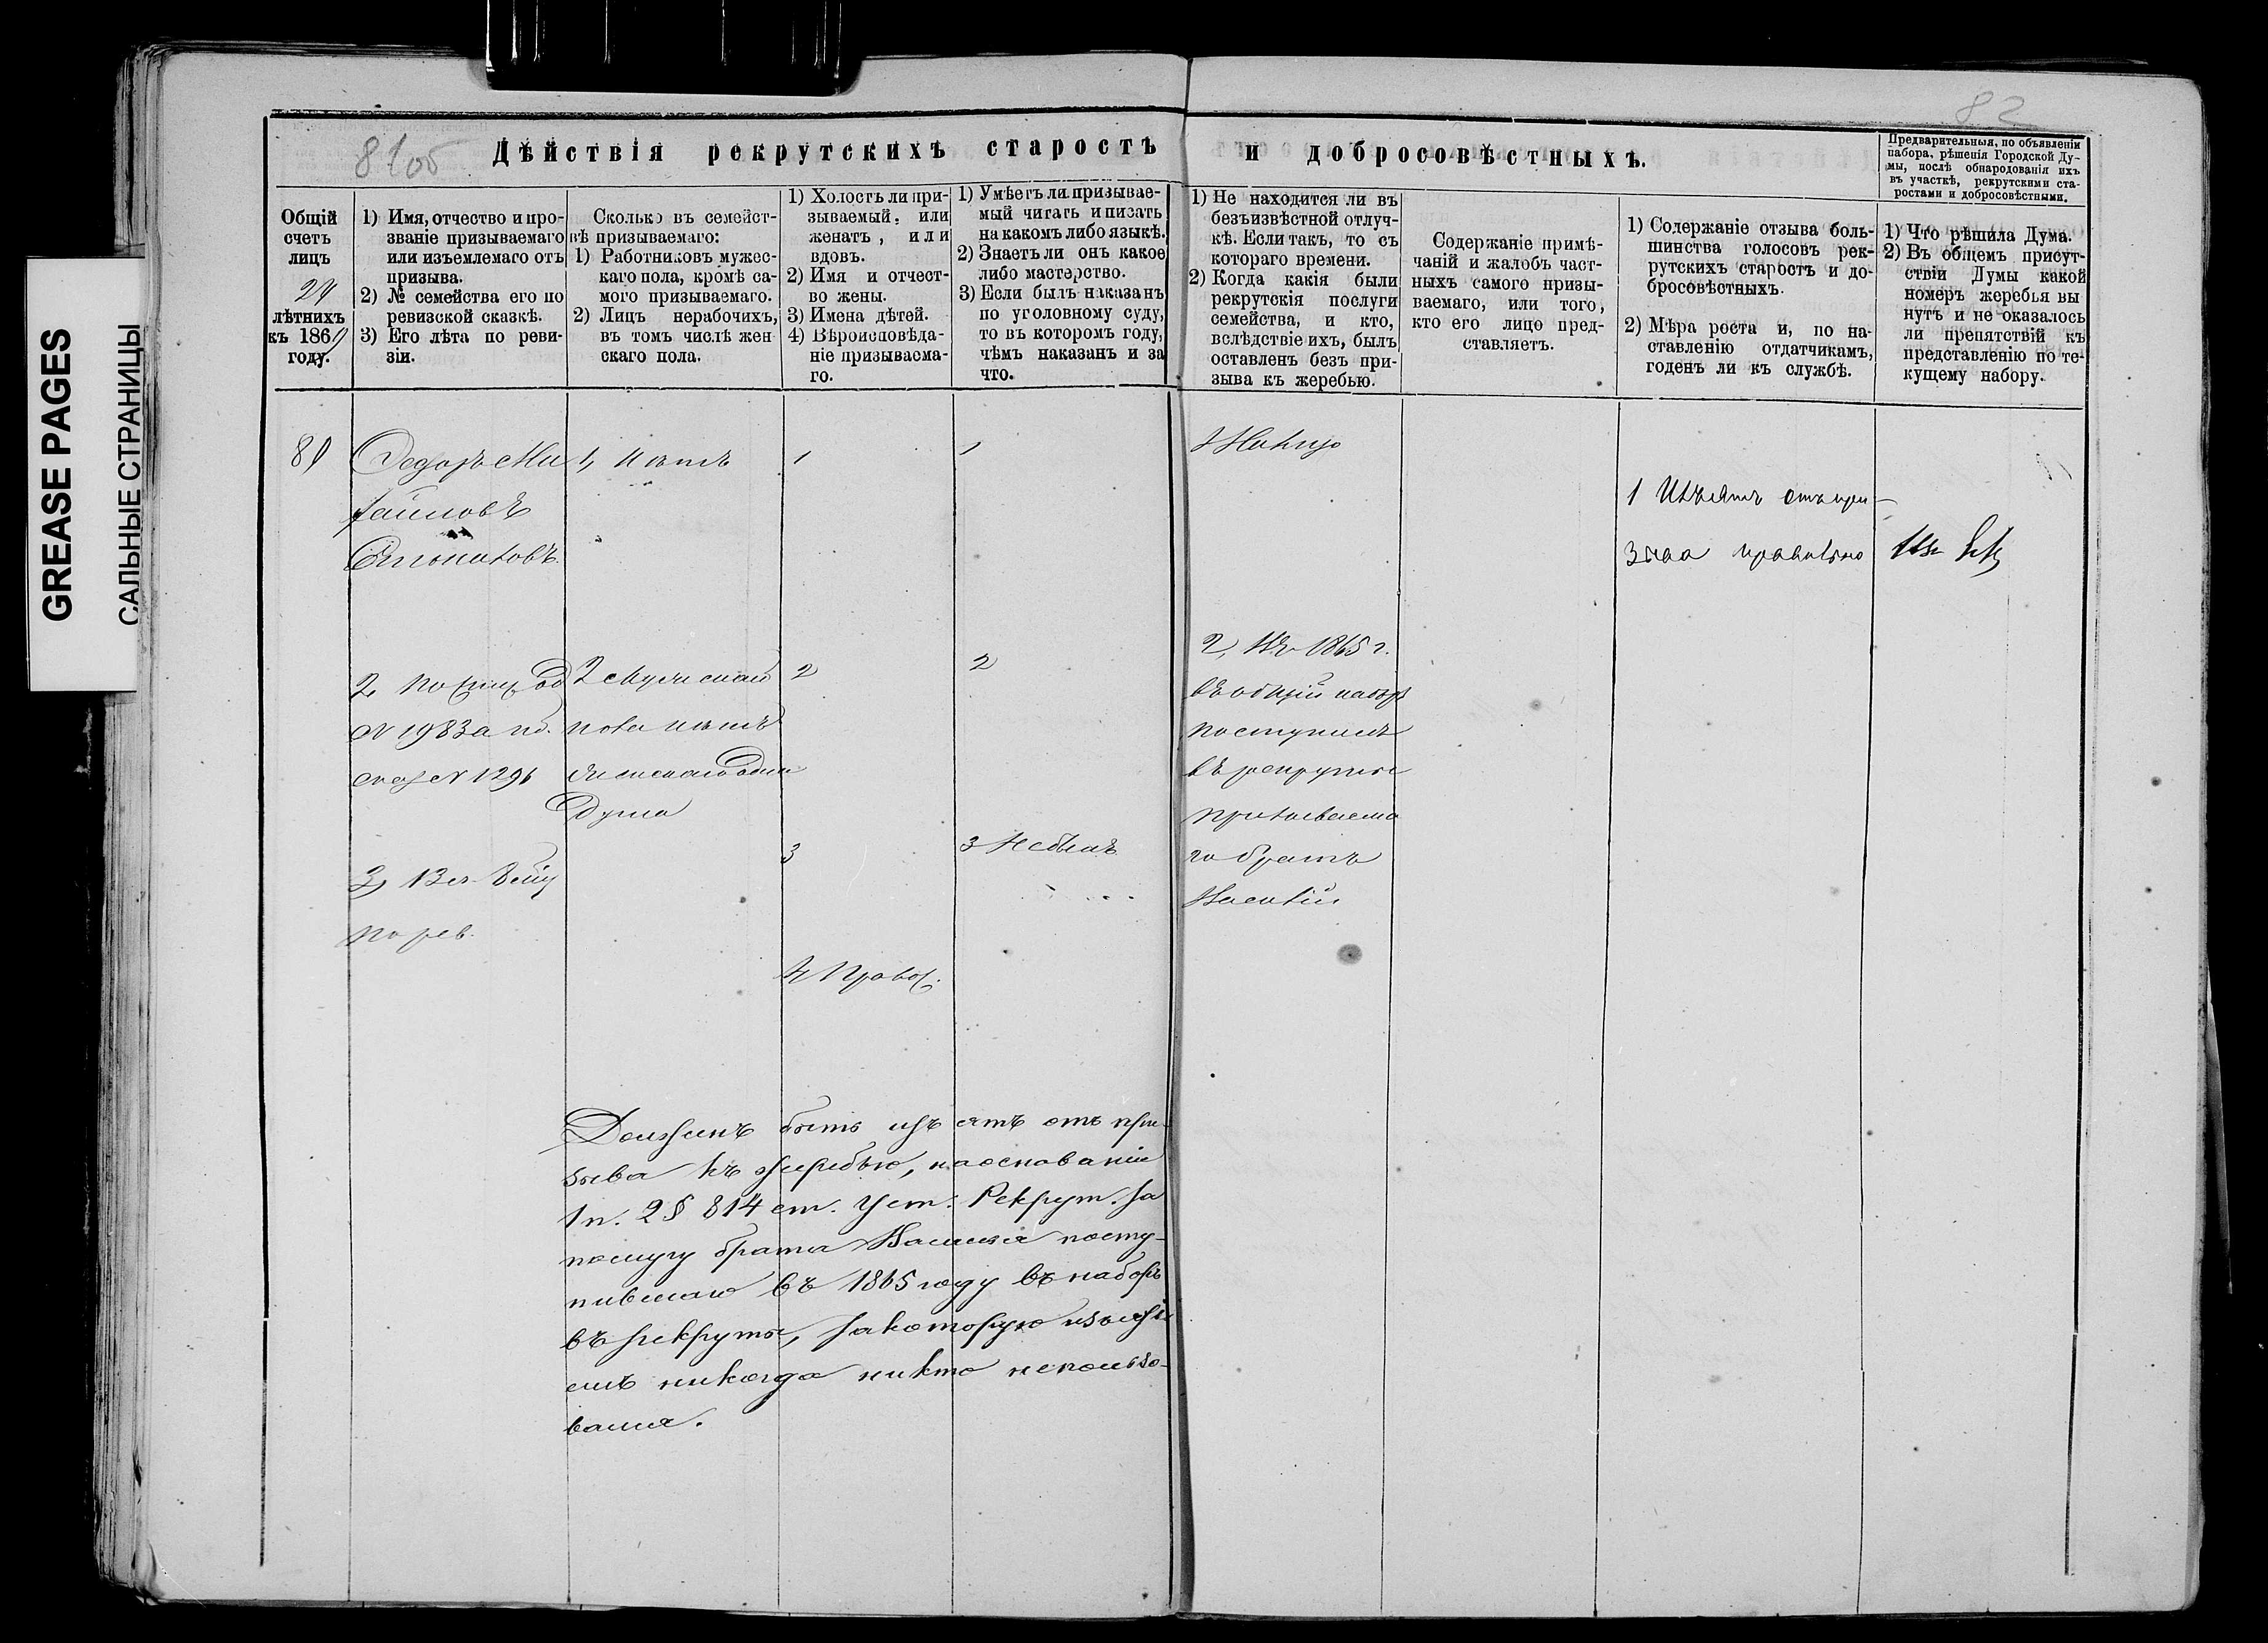 GREASE PAGES
САЛЬНЫЕ СТРАНИЦЫ
82
81об
Дѣйствія рекрутскихъ старостъ и добросовѣстныхъ.
Предварительныя, по объявленіи
набора, рѣшенія Городской Ду-
мы, послѣ обнародованія ихъ
въ участкѣ, рекрутскими ста-
ростами и добросовѣстными.
Общій
счетъ
лицъ
лѣтнихъ
къ 186
году.
1) Имя, отчество и про-
званіе призываемаго
или изъемлемаго отъ
призыва.
2) № семейства его по
ревизской сказкѣ.
3) Его лѣта по реви-
зіи.
Сколько въ семейст-
вѣ призываемаго:
1) Работниковъ мужес-
каго пола, кромѣ са-
мого призываемаго.
2) Лицъ нерабочихъ,
въ томъ числѣ жен
скаго пола.
1) Холостъ ли при-
зываемый, или
женатъ, или
вдовъ.
2) Имя и отчест-
во жены.
3) Имена дѣтей.
4) Вѣроисповѣда-
ніе призываема-
го.
1) Умѣетъ ли призывае-
мый читать и писать
на какомъ либо языкѣ.
2) Знаетъ ли онъ какое
либо мастерство.
3) Если былъ наказанъ
по уголовному суду,
то въ которомъ году,
чѣмъ наказанъ и за
что.
1) Не находится ли въ
безъизвѣстной отлуч-
кѣ. Если такъ, то съ
котораго времени.
2) Когда какія были
рекрутскія послуги
семейства, и кто,
вслѣдствіе ихъ, былъ
оставленъ безъ при-
зыва къ жеребью.
Содержаніе примѣ-
чаній и жалобъ част-
ныхъ самого призы-
ваемаго, или того,
кто его лицо пред-
ставляетъ.
1) Содержаніе отзыва боль-
шинства голосовъ рек-
рутскихъ старостъ и до-
бросовѣстныхъ.
2) Мѣра роста и, по на-
ставленію отдатчикамъ,
годенъ ли къ службѣ.
1) Что рѣшила Дума.
2) Въ общемъ присут-
ствіи Думы какой
номеръ жеребья вы
нутъ и не оказалось
ли препятствій къ
представленію по те-
кущему набору.
Федоръ Ми
хайловъ
1, нѣтъ
1
1
1 Изъятъ отъ при-
зыва правильно
2
N 1983 а по.
сказ N 1291
2 мужскаго
пола нѣтъ
женскаго одна
душа
2
2
2, Въ 1865 г.
въ общій наборъ
поступилъ
въ рекруты
призываема
го братъ
Василій
3)
по рев.
3
3 Не былъ
4 Правос.
Долженъ быть изъятъ отъ при-
зыва къ жеребью, на основаніи
1 п. 2 § 814 ст. Уст. Рекрут. за
послугу брата Василья посту-
пившаго въ 1865 году въ наборъ
въ рекруты, за которую изъяті-
емъ никогда никто непользо-
вался.